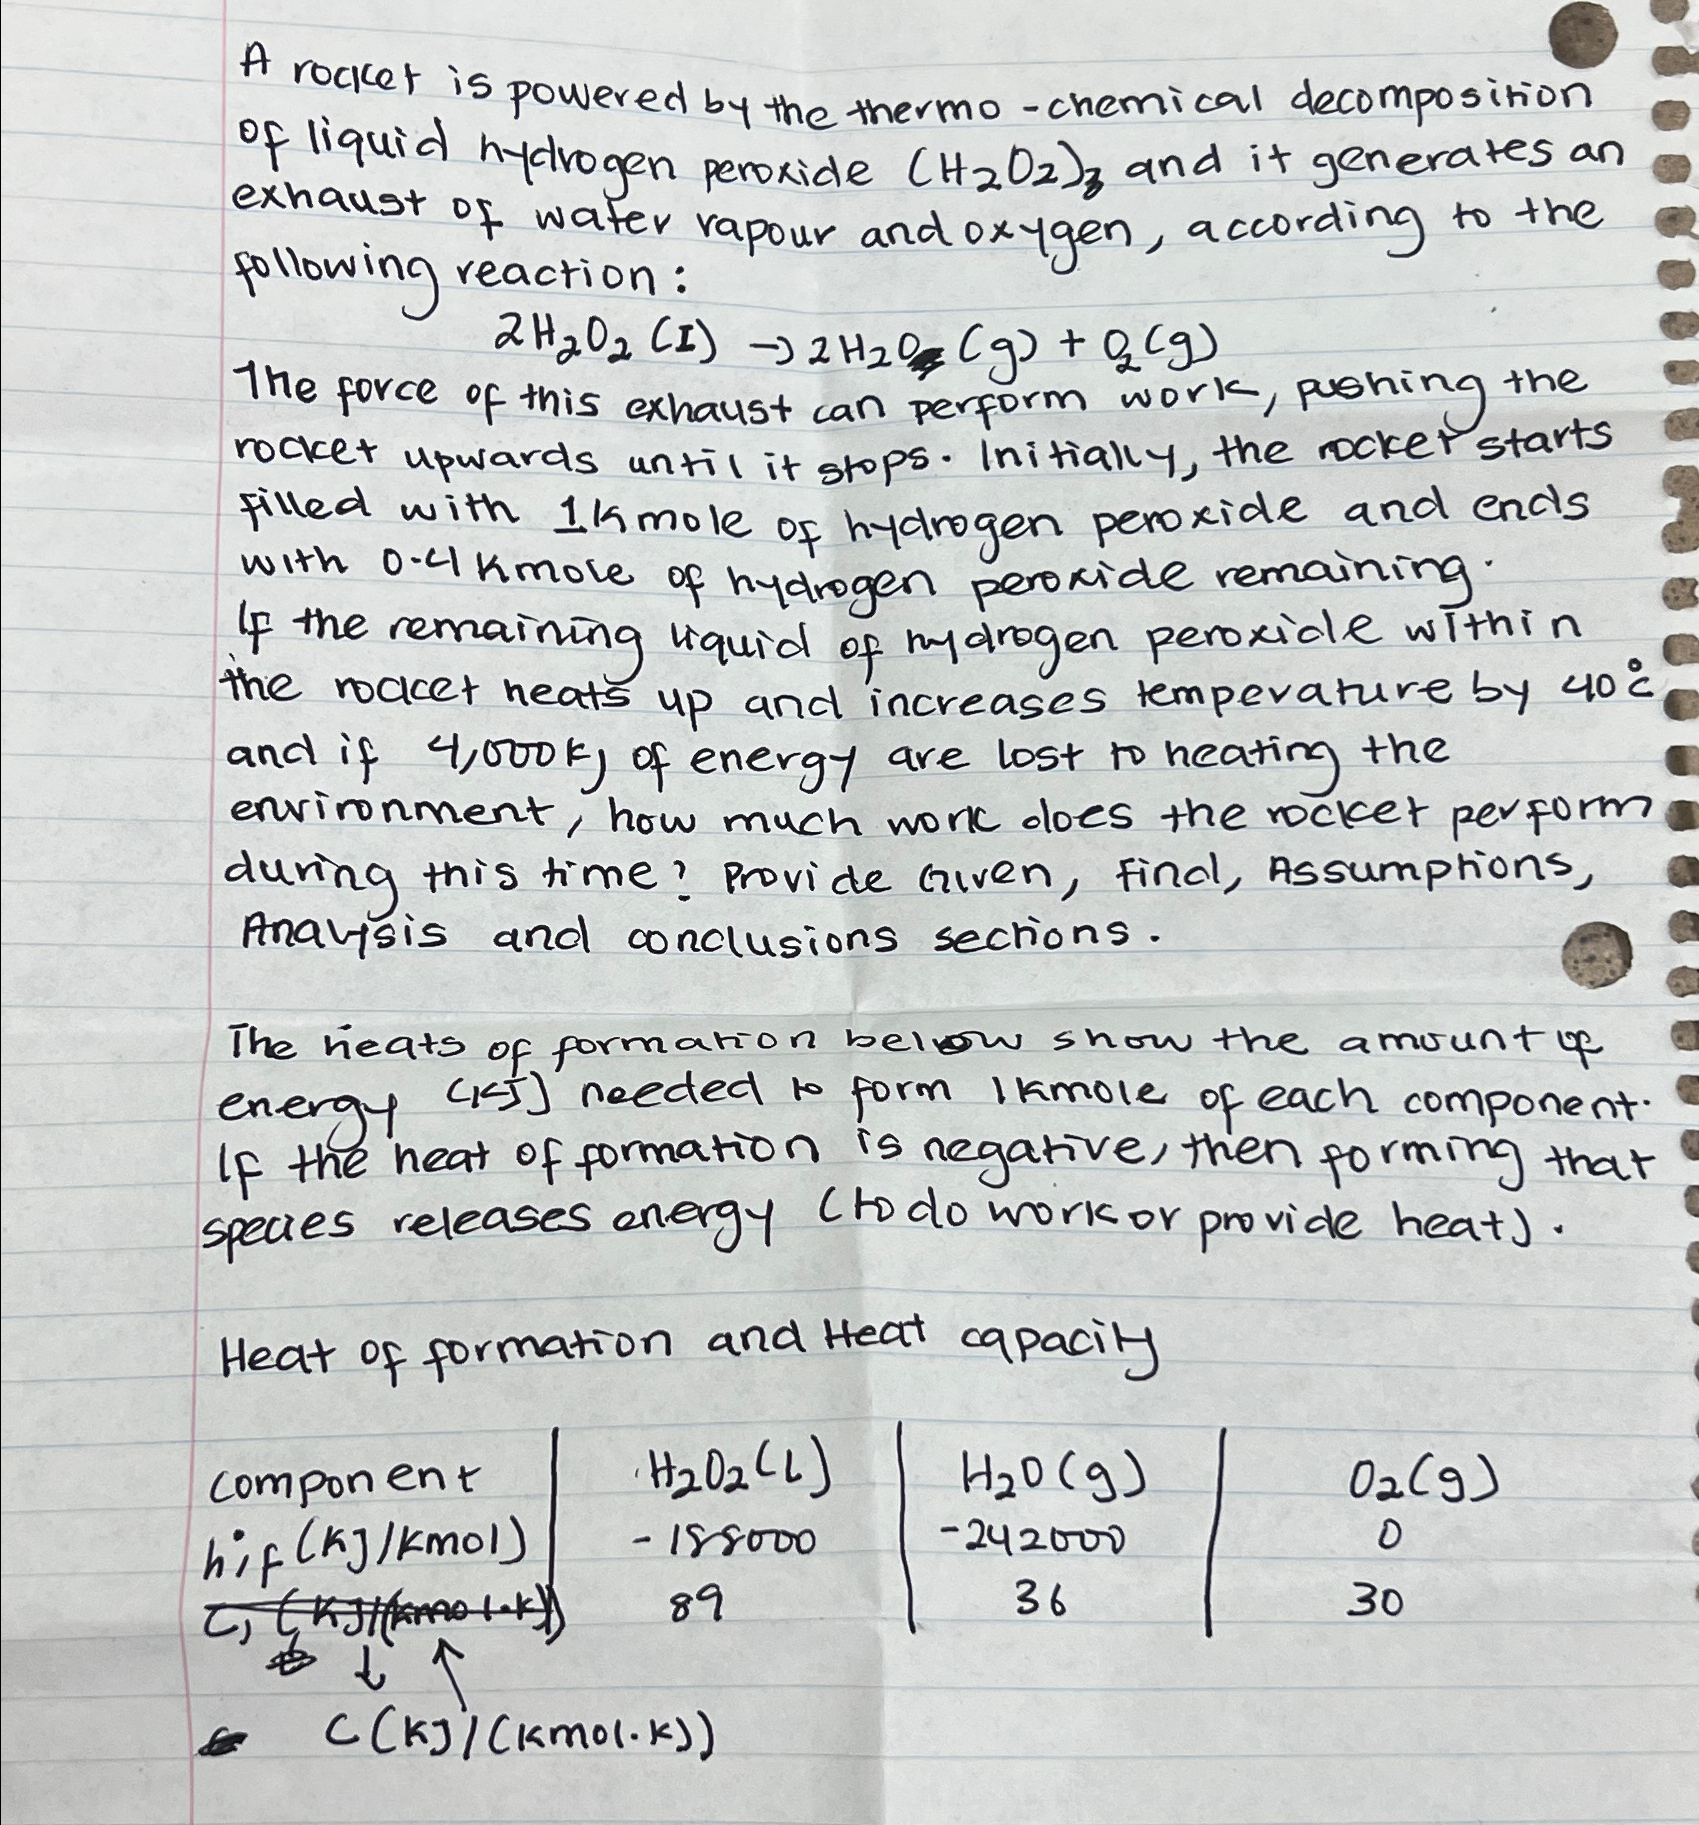 A rocket is powered by the thermo-chemical decomposition
of liquid hydrogen peroxide (H2O2)3 and it generates an
exhaust of water vapour and oxygen, according to the
following reaction:
2H2O2 (I) → 2H2O (g) + O2 (g)
The force of this exhaust can perform work, pushing the
rocket upwards until it stops. Initially, the rocket starts
filled with 1kmole of hydrogen peroxide and ends
with 0.4 kmole of hydrogen peroxide remaining.
If the remaining liquid of hydrogen peroxide within
the rocket heats up and increases temperature by 40°C
and if 4,000KJ of energy are lost to heating the
environment, how much work does the rocket perform
during this time? Provide Given, Find, Assumptions,
Analysis and conclusions sections.
The heats of formation below show the amount of
energy (KJ) needed to form 1kmole of each component.
If the heat of formation is negative, then forming that
species releases energy (to do work or provide heat).
Heat of formation and Heat capacity
component H2O2(L) H2O(g) O2(g)
hif (KJ/Kmol) -188000 -242000 0
C, (KJ/(kmol.k)) 89 36 30
↓ ↑
C(KJ/(kmol.k))